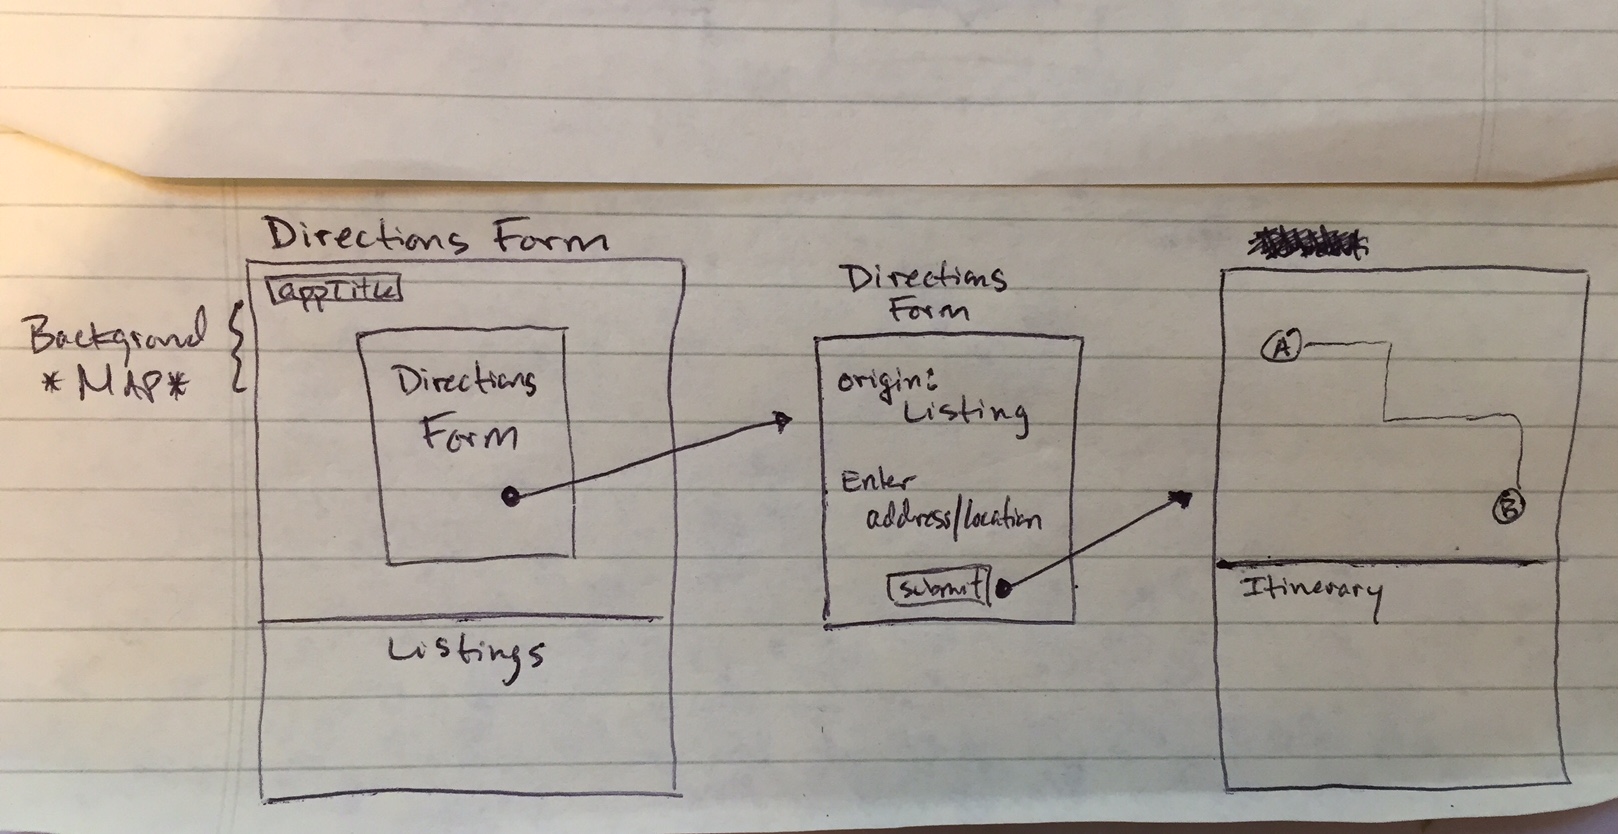 Directions Form
appTitle
Backgrond
*MAP*
Directions
Form
Listings
Directions
Form
origin:
Listing
Enter
address/location
submit
A
B
Itinerary